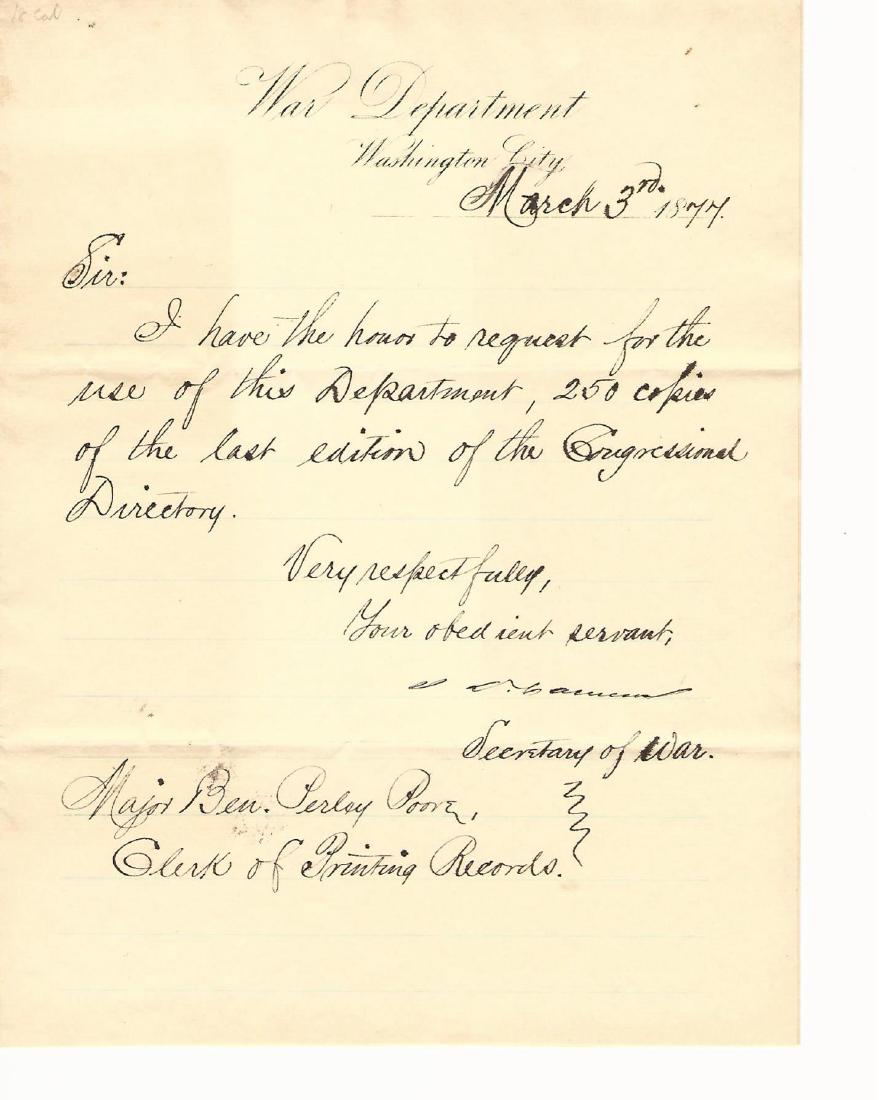 War Department
Washington City
March 3rd. 1877.
Sir:
I have the honor to request for the
use of this Department, 250 copies
of the last edition of the Congressional
Directory.
Very respectfully,
Your obedient servant,
J. D. Cameron
Secretary of War.
Major Ben. Perley Poore,
Clerk of Printing Records.